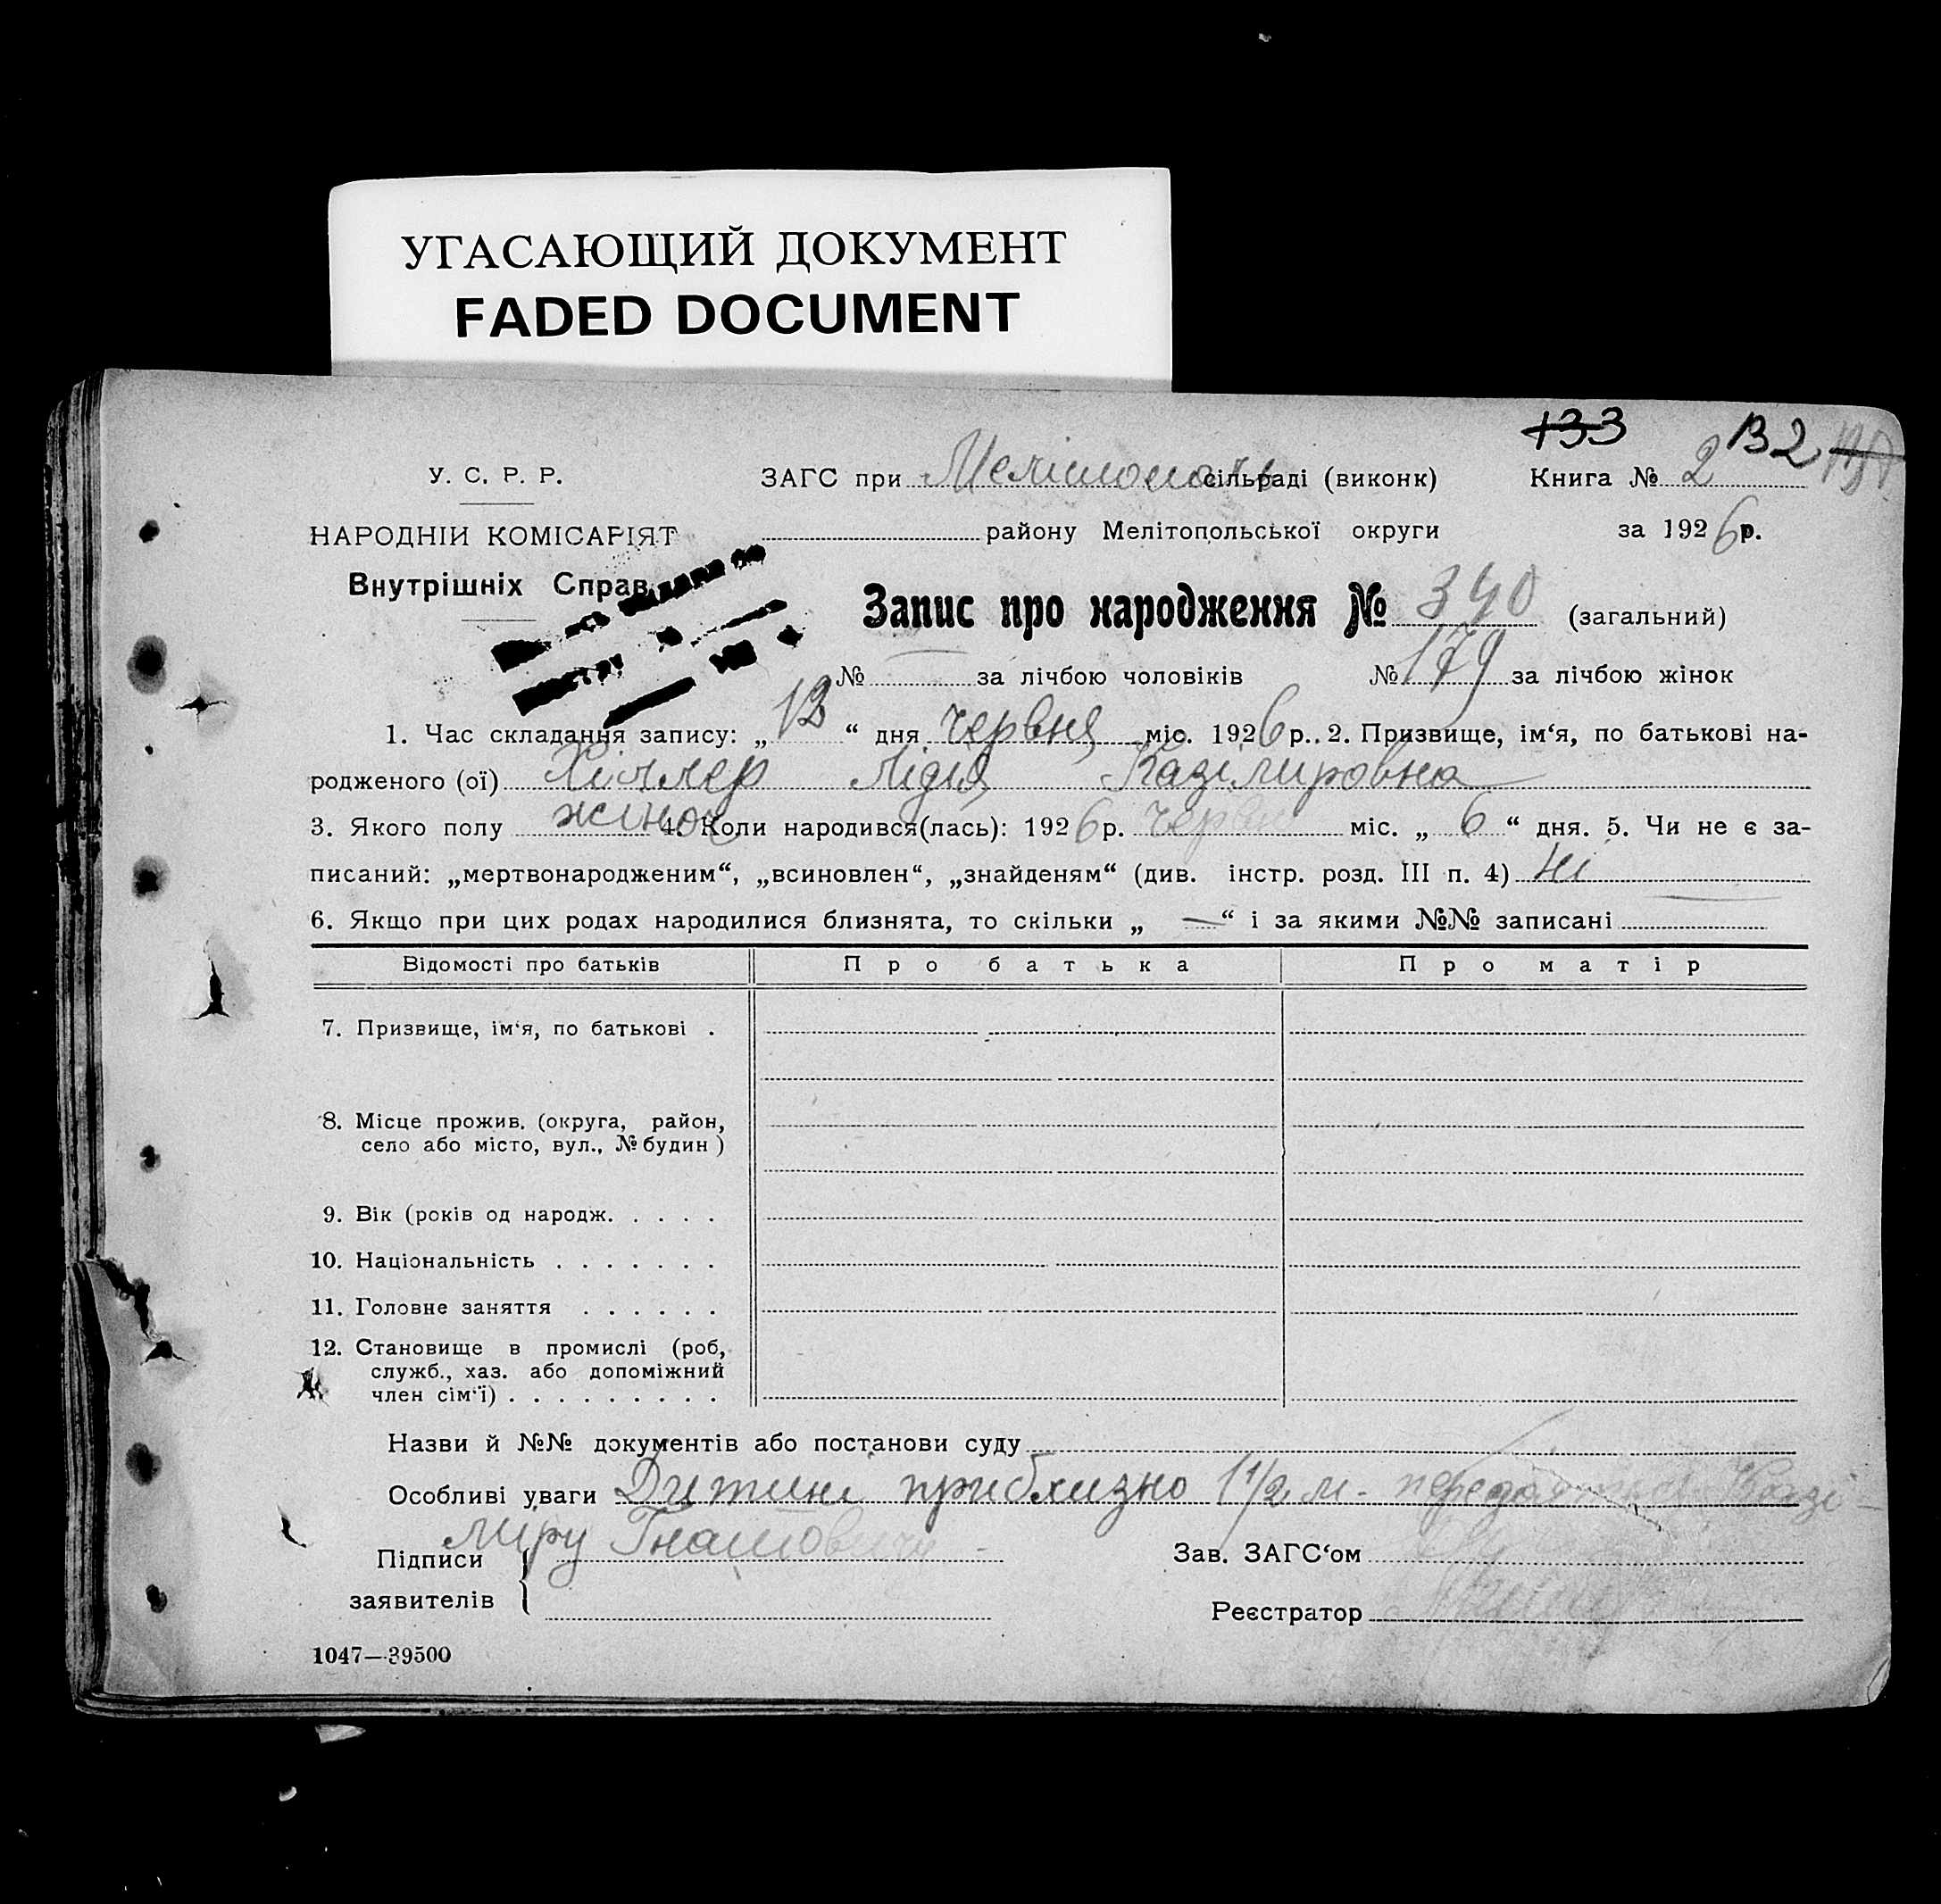 УГАСАЮЩИЙ ДОКУМЕНТ
FADED DOCUMENT
133 132
У. С. Р. Р. ЗАГС при Мелітополь сільраді (виконк) Книга № 2
НАРОДНІЙ КОМІСАРІЯТ району Мелітопольської округи за 1926 р.
Внутрішніх Справ
Запис про народження № 340 (загальний)
№ за лічбою чоловіків № 179 за лічбою жінок
1. Час складання запису: „ 13 “ дня червня міс. 1926 р.. 2. Призвище, ім‘я, по батькові на-
родженого (ої) Хіллер Лідія Казіміровна
3. Якого полу жіноч 4. Коли народився(лась): 1926 р. червня міс. „ 6 “ дня. 5. Чи не є за-
писаний: „мертвонародженим“, „всиновлен“, „знайденям“ (див. інстр. розд. III п. 4) ні
6. Якщо при цих родах народилися близнята, то скільки „ — “ і за якими №№ записані
Відомості про батьків Про батька Про матір
7. Призвище, ім‘я, по батькові .
8. Місце прожив. (округа, район,
село або місто, вул., № будин )
9. Вік (років од народж. . . . .
10. Національність . . . . . . .
11. Головне заняття . . . . . .
12. Становище в промислі (роб,
служб., хаз. або допоміжний
член сім‘ї) . . . . . . . . .
Назви й №№ документів або постанови суду
Особливі уваги Дитині приблизно 1 1/2 м. Казі-
миру Гнатовичу
Підписи Зав. ЗАГС‘ом
заявителів Реєстратор
1047—39500